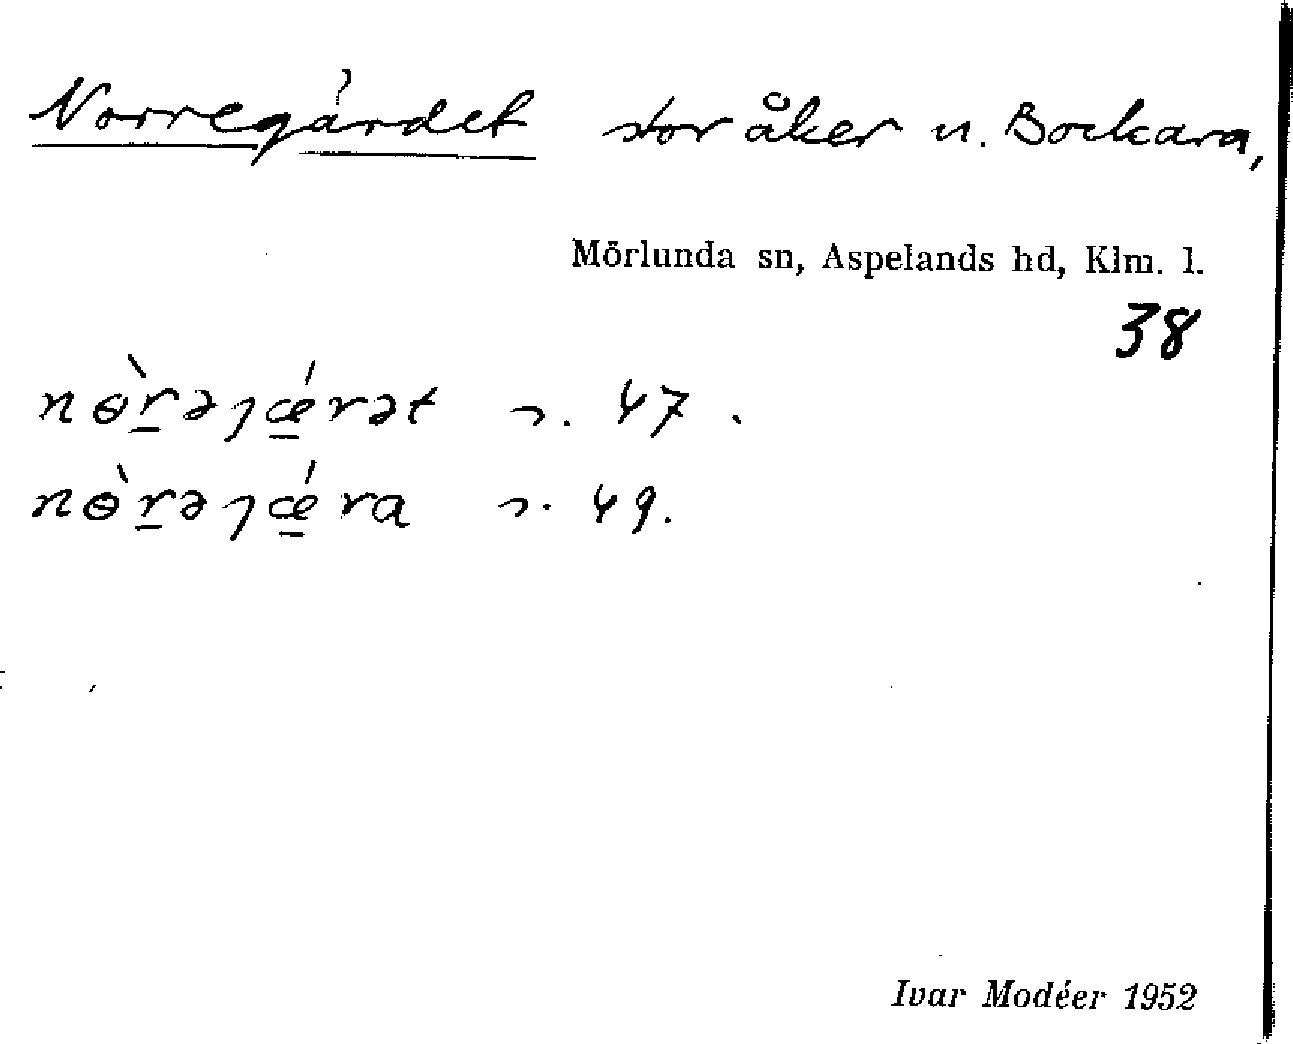 Norregärdet stor åker n. Bockara,
Mörlunda sn, Aspelands hd, Klm. l.
38
nɵ̀r̲əȷǽ̲rət s. 47.
nɵ̀r̲əȷǽ̲ra s. 49.
Ivar Modéer 1952